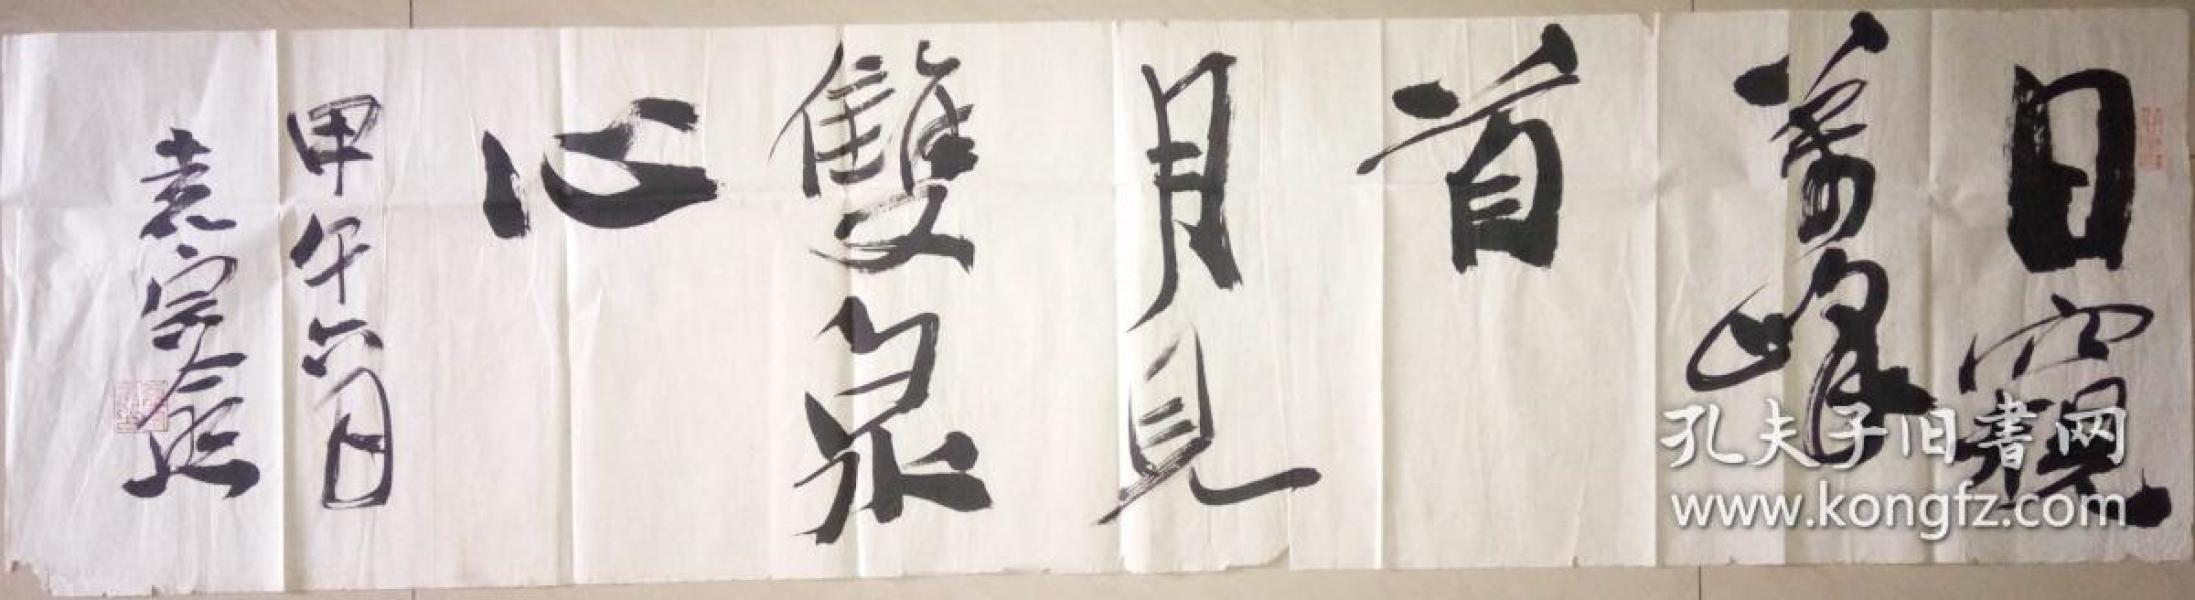 日窺
萬峰
首
月見
雙泉
心
甲午六月
袁宗
孔夫子旧書网
www.kongfz.com